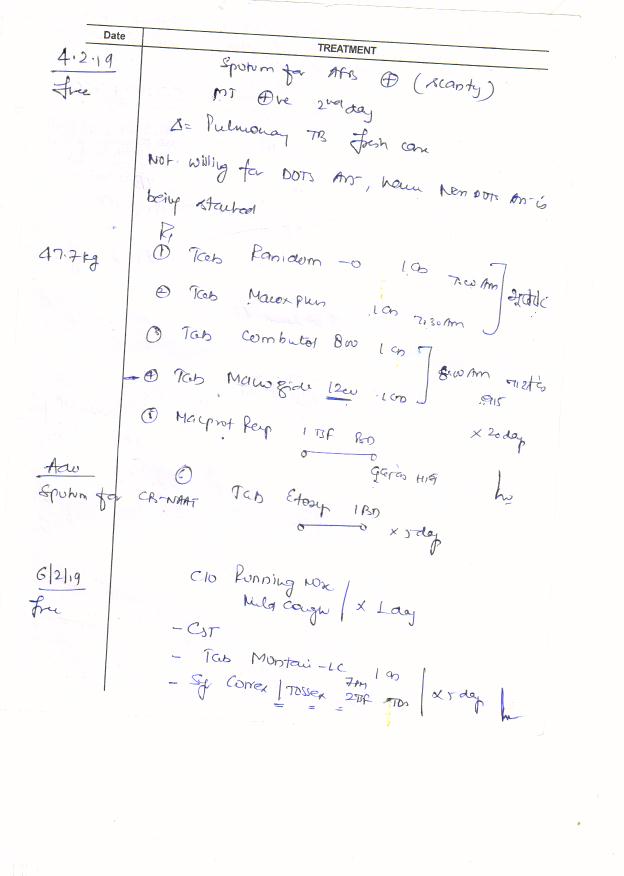 Date
TREATMENT
4.2.19
Sputum for AFB ⊕ (scanty)
Free
MT ⊕ve 2nd day
Δ= Pulmonary TB fresh case
Not willing for DOTS ATT, hence Non DOTS ATT is
being started
Rx
47.7kg
① Tab 1 OD 7.00 AM
② Tab Macox plus 1 OD 7.30 AM
③ Tab Combutol 800 1 OD
④ Tab 1 OD 8.00 AM
⑤ Macprot 1 TSF BD x 20 day
Adv
Sputum for CB-NAAT
⑥ Tab 1 BD x 5 day
6/2/19
C/o Running Nose
Free
Mild Cough x 1 day
- CST
- Tab Montair-LC 1 OD
7PM
- Syp Corex / Tossex 2TSF TDS x 5 day